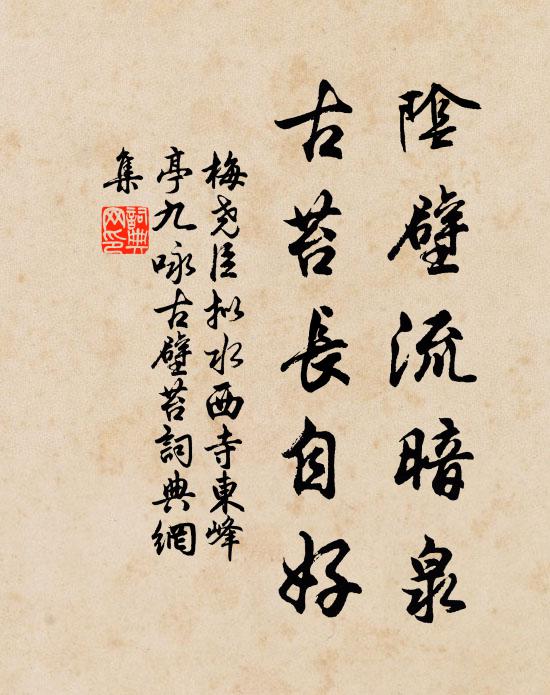 陰壁流暗泉
古苔長自好
梅堯臣擬水西寺東峰
亭九咏古壁苔詞典網
集
詞典
網印